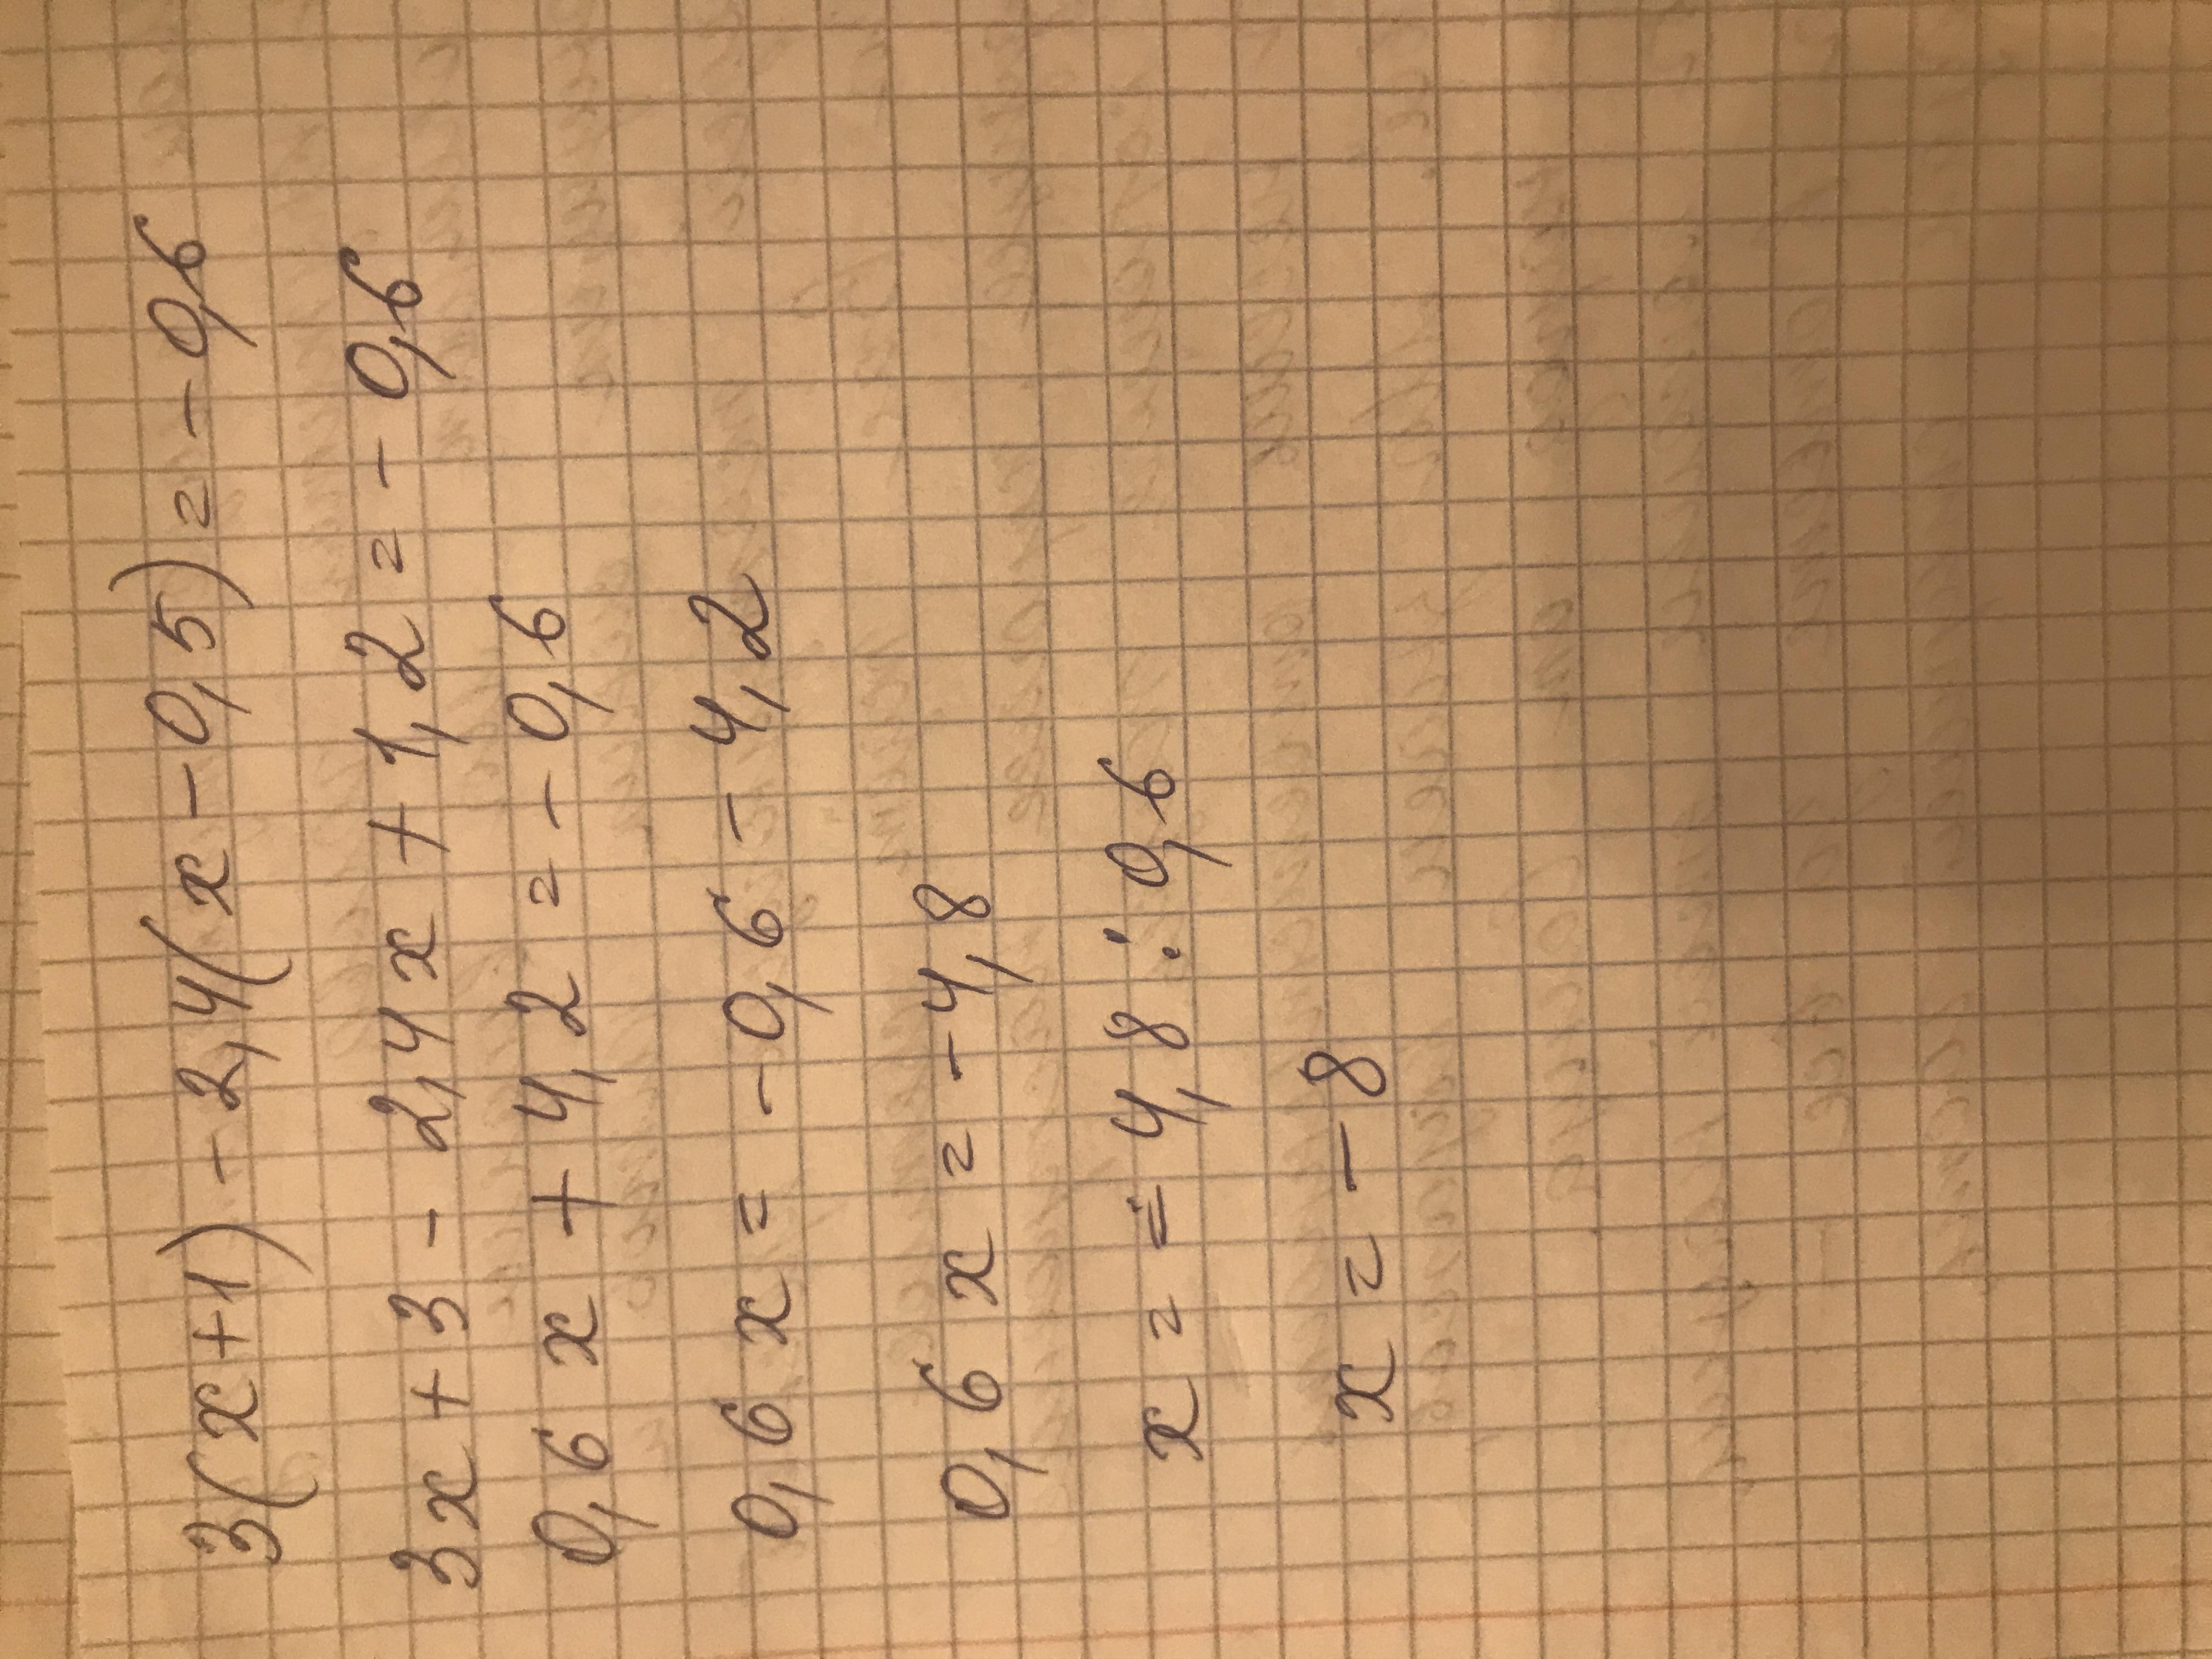 3(x+1) - 2,4(x-0,5) = - 0,6
3x + 3 - 2,4x + 1,2 = - 0,6
0,6x + 4,2 = - 0,6
0,6x = - 0,6 - 4,2
0,6x = - 4,8
x = = 4,8 : 0,6
x = - 8